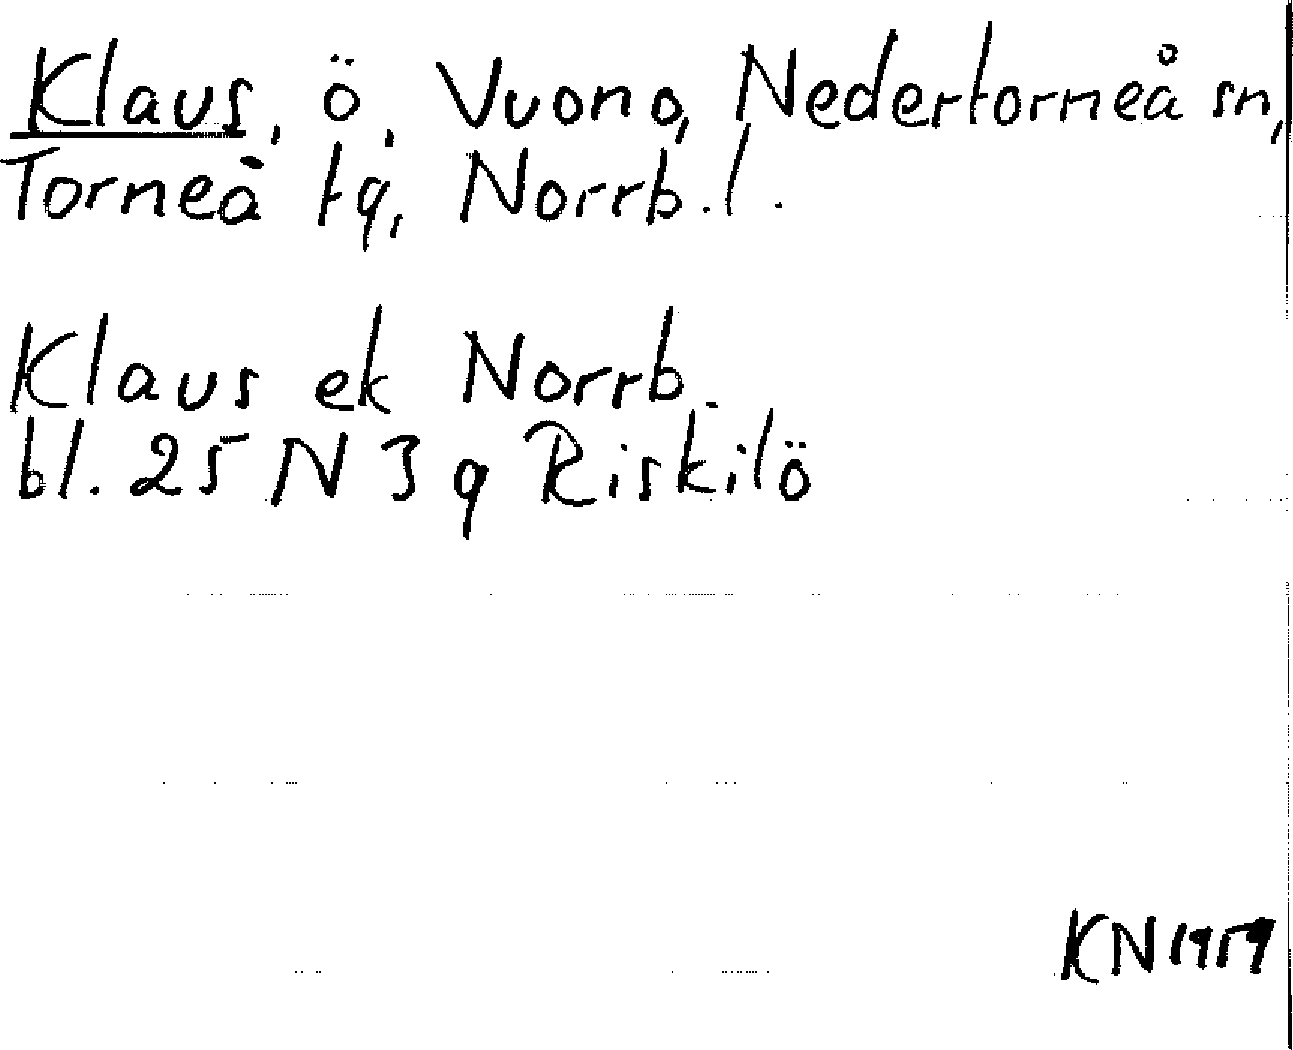 Klaus, ö, Vuono, Nedertorneå sn,
Torneå tg, Norrb. l.
Klaus ek Norrb.
bl. 25 N 3 g Riskilö
KN 1959